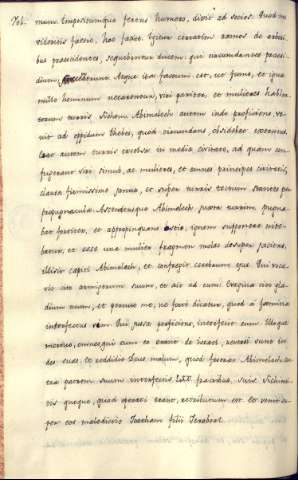 manu tempestissimque ferens humeris, dixit ad socios: Quod me
videritis facere, hoc facite. Igitur certatim ramos de arbori-
bus praecidentes, sequebantur ducem. qui circumdantes praesi-
dium, succenderunt. Atque ita factum est, ut fumo, et igne
mille hominum necarentur, viri pariter, et mulieres habita-
torum turris Sichem. Abimelech autem inde proficiscens, ve-
nit ad oppidum Thebes, quod circumdans, obsidebat exercitu.
Erat autem turris excelsa in media civitate, ad quam con-
fugerant viri simul, ac mulieres, et omnes principes civitatis,
clausa firmissime janua, et super turris tectum stantes per
propugnacula. Accedensque Abimelech juxta turrim, pugna-
bat fortiter, et appropinquans ostio, ignem supponere nite-
batur, et ecce una mulier fragmen molae desuper jaciens,
illisit capiti Abimelech, et confregit cerebrum ejus. Qui voca-
vit cito armigerum suum, et ait ad eum: Evagina gla-
dium tuum, et percute me, ne forte dicatur, quod a femina
interfectus sim. Qui jussa perficiens, interfecit eum. Illoque
mortuo, omnes qui cum eo erant de Israel, reversi sunt in
sedes suas. et reddidit Deus malum, quod fecerat Abimelech con-
tra patrem suum interfectis fratribus suis. Sichimi-
tis quoque, quod operati erant, retributum est. et venit su-
per eos maledictio Joatham filii Jerobaal.